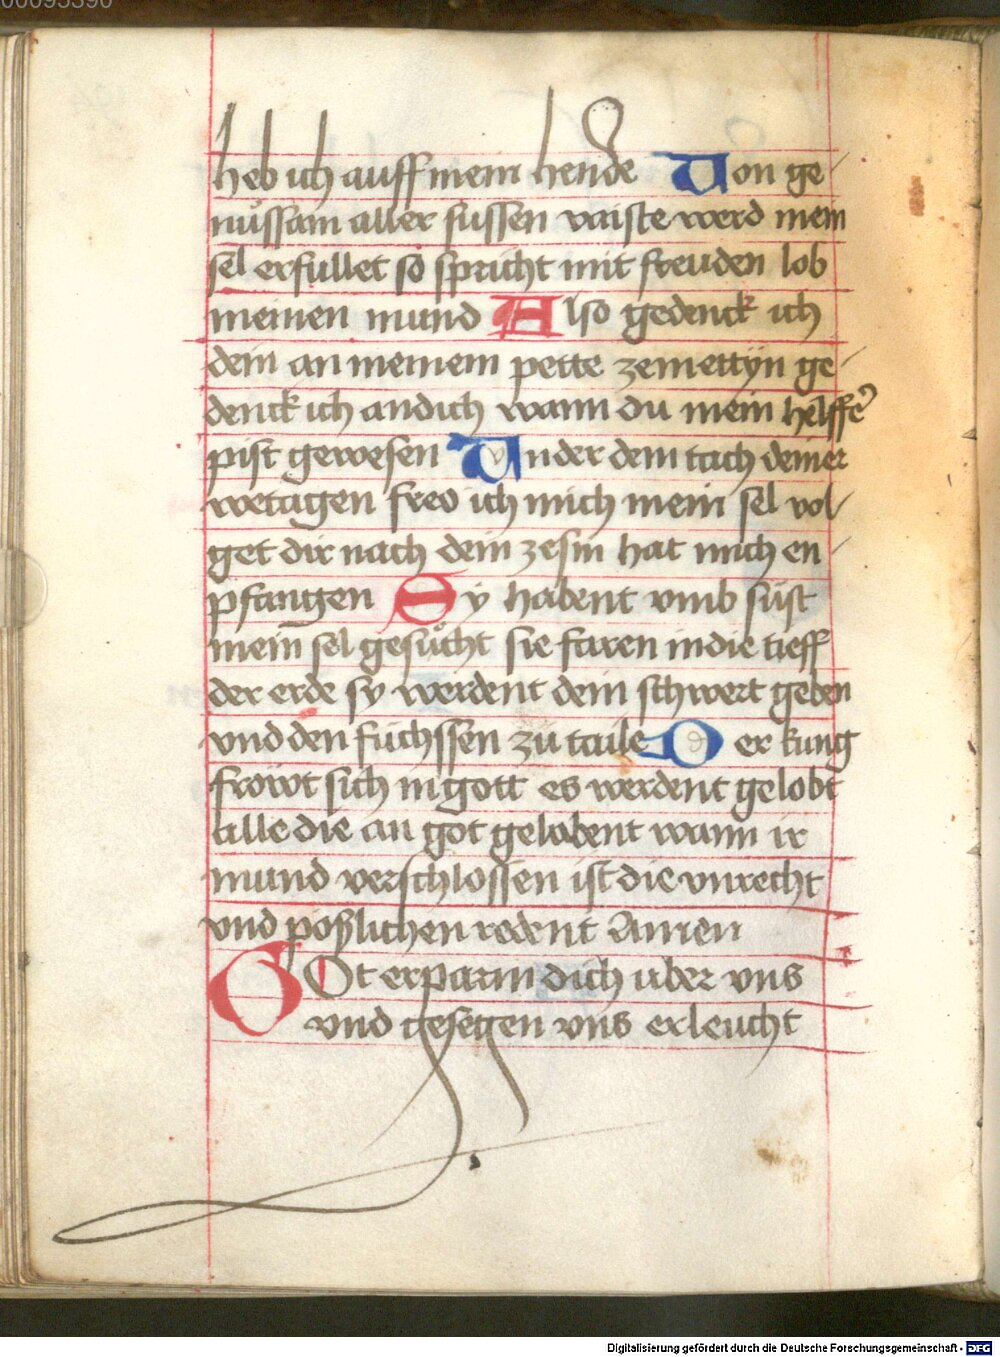 00095390
heb ich auff mein hende Von ge-
nůssam aller sussen vaiste werd mein
sel erfullet so spricht mit freuden lob
meinen mund Also gedenck ich
dein an meinem pette ze mettyn ge-
denck ich an dich wann du mein helffer
pist gewesen Vnder dem tach deiner
wetagen freo ich mich mein sel vol-
get dir nach dein zesm hat mich en-
pfangen Sy habent vmb sust
mein sel gesůcht sie faren in die tieff
der erde sy werdent dem schwert geben
vnd den fuchssen zu taile Der kung
frowt sich in gott es werdent gelobt
alle die an got gelobent wann ir
mund verschlossen ist die vnrecht
vnd poßlichen redent Amen
GOt erparm dich uber vns
vnd gesegen vns erleucht
Digitalisierung gefördert durch die Deutsche Forschungsgemeinschaft - DFG